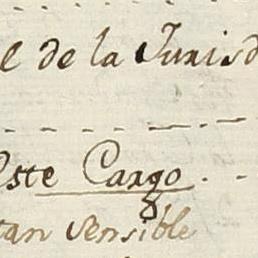 l de la Jurisd
Este Cargo
tan sensible